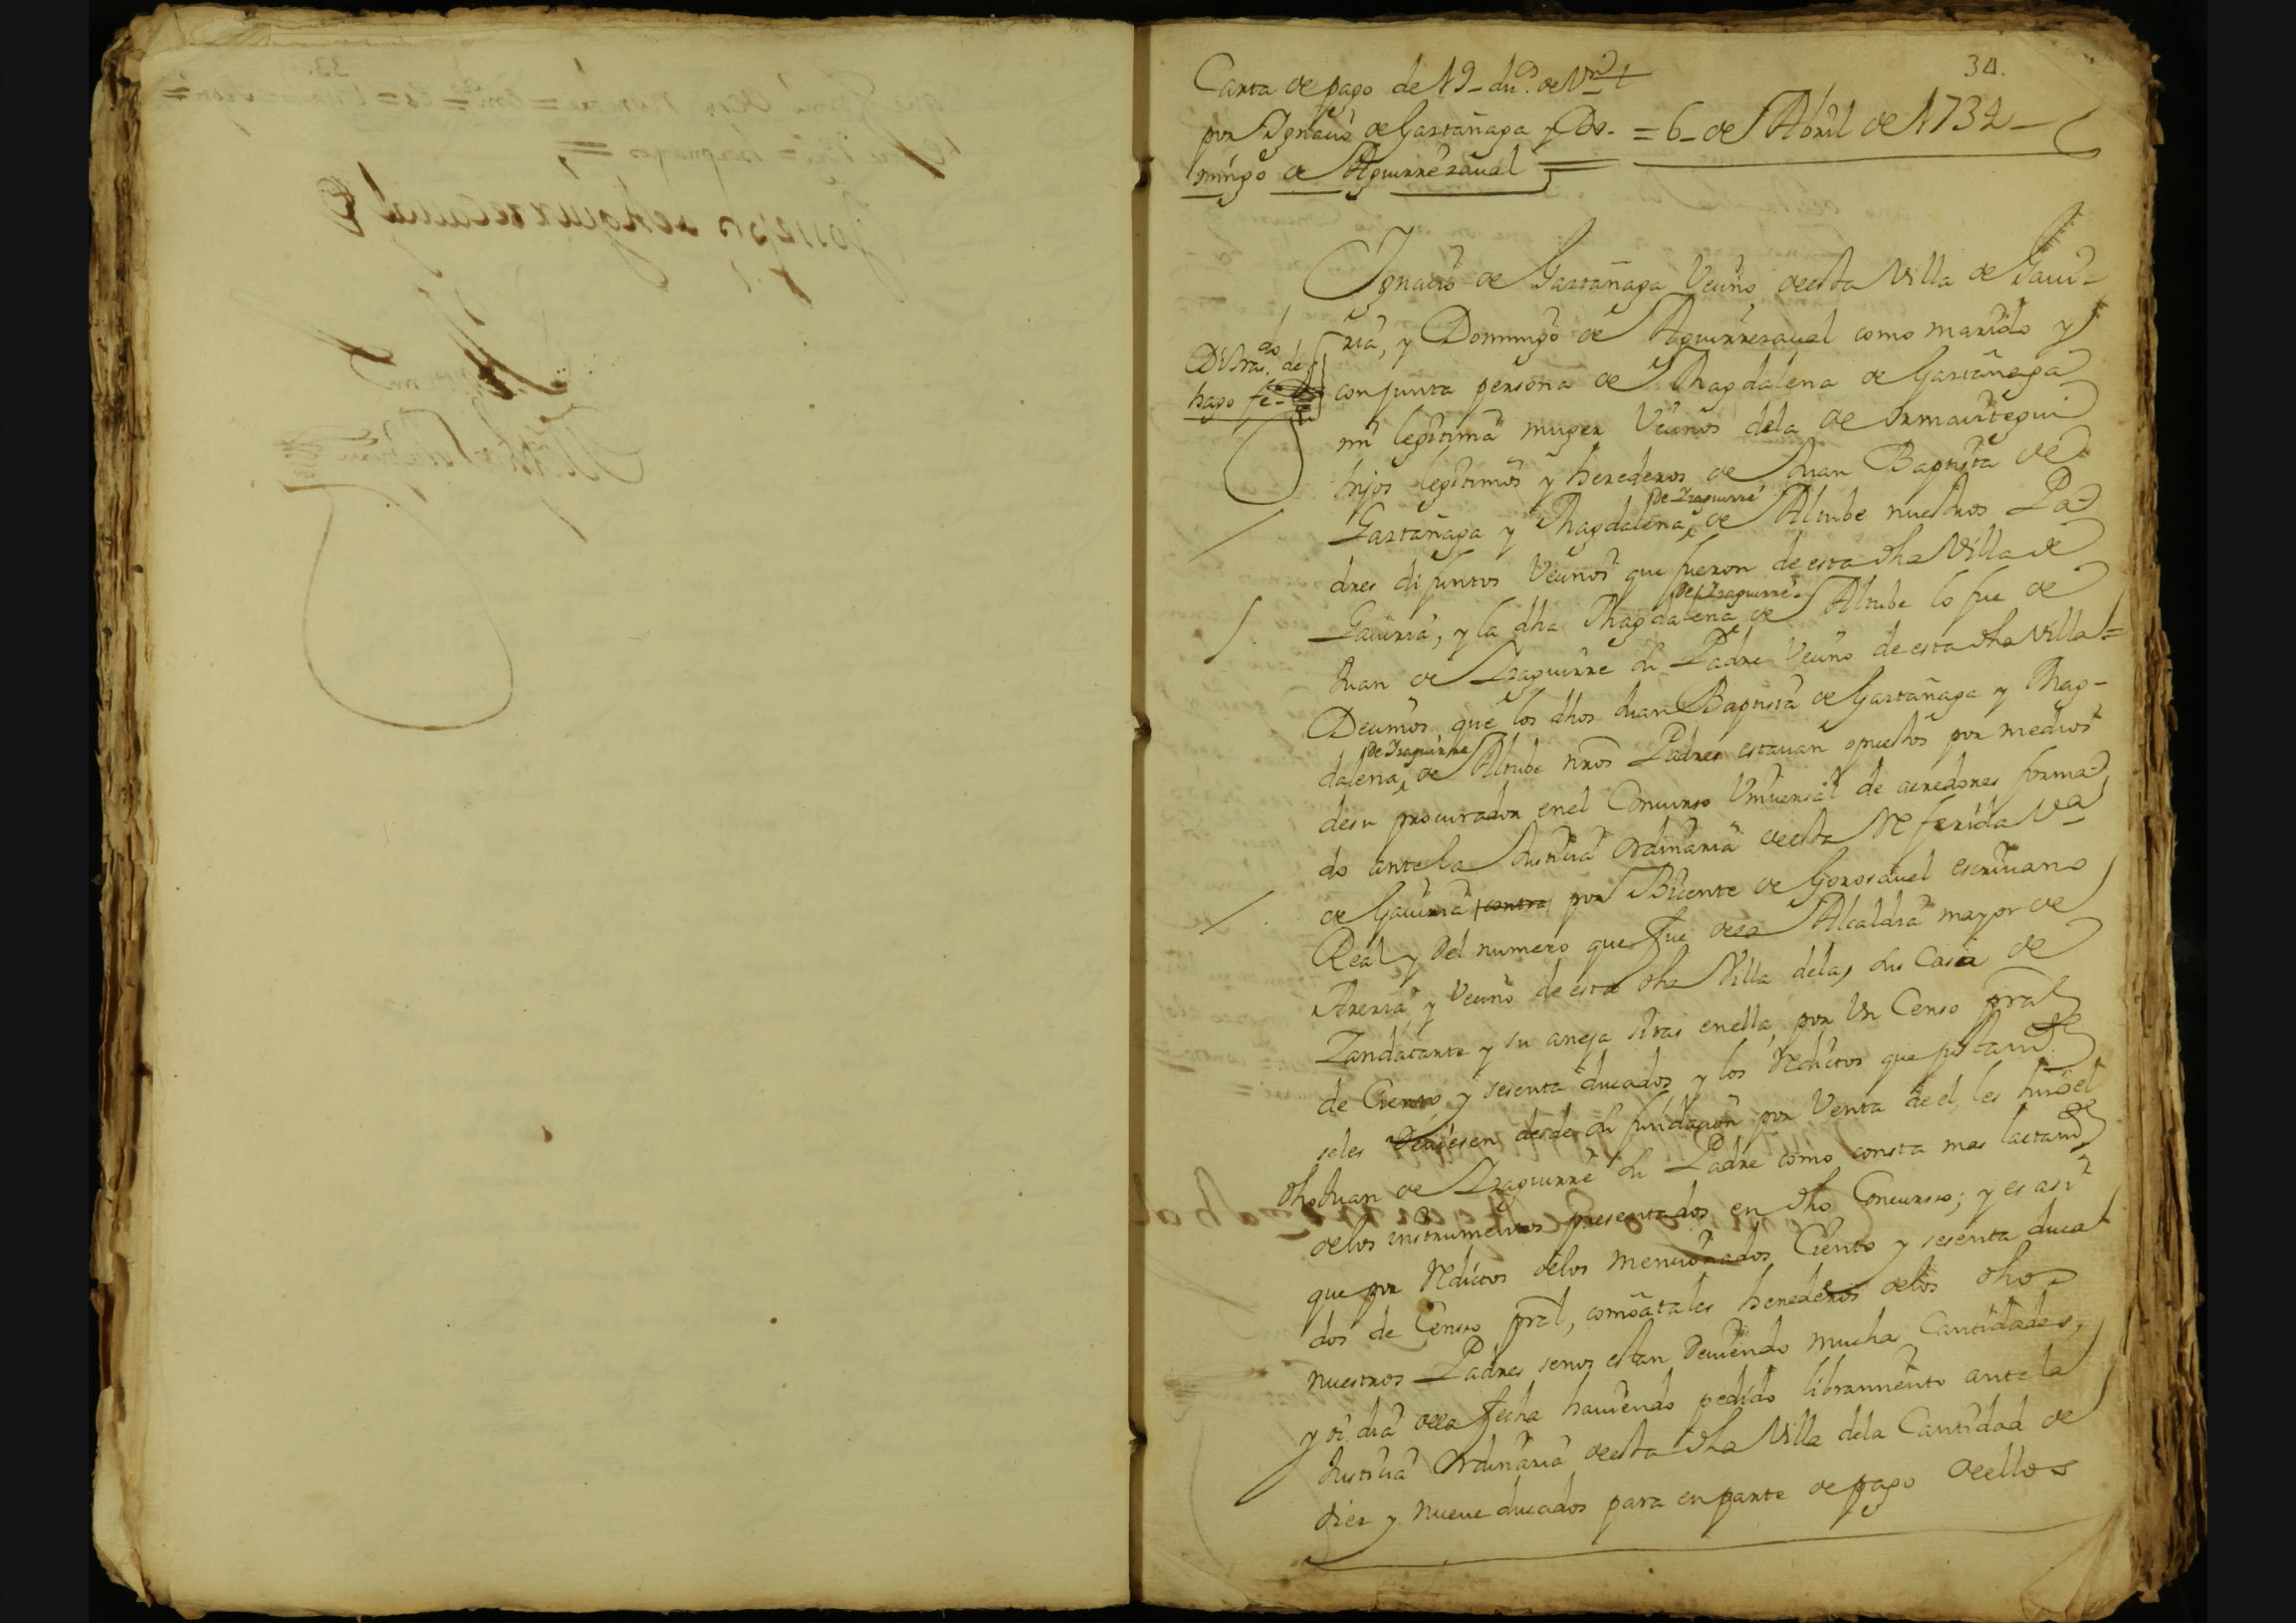 34.
Carta de pago de 19_ du.os de Vn
por Ignacio de Gastañaga y Do-
mingo de Aguirrezaual
= 6_ de Abril de 1734_
Ignacio de Gastañaga Vecino de esta Villa de Gaui-
ria, y Domingo de Aguirrezaual como marido y
conjunta persona de Magdalena de Gastañaga
mi legitima muger Vecinos dela de Ormaiztegui
hijos legitimos y herederos de Juan Baptista de
De Izaguirre
Gastañaga y Magdalena de Altube nuestros Pa-
dres difuntos Vecinos que fueron de esta dha Villa de
De Izaguirre
Gauiria, y la dha Magdalena de Altube lo fue de
Juan de Izaguirre su Padre Vecino de esta dha Villa=
Decimos que los dhos Juan Baptista de Gastañaga y Mag-
De Izaguirre
dalena de Altube nros Padres estauan opuestos por medio
de su procurador enel Concurso Vniuersal de acredores forma-
do ante la Justicia Ordinaria de esta Referida Va
de Gauiria contra por Bicente de Gorosauel escriuano
Real y del numero que fue de la Alcaldia mayor de
Areria y Vecino de esta dha Villa dela, su Casa de
y su aneja sitas enella, por Vn Censo pral
de Ciento y sesenta ducados y los Reditos que justamte
seles deuiesen desde su fundacion por Venta de el, les hizo el
dho Juan de Izaguirre su Padre como consta mas laetamte
delos instrumentos presentados en dho Concurso; y es asi
que por Reditos delos mencionados Ciento y sesenta duca
dos de Censo pral, como a tales herederos delos dhos
nuestros Padres senos estan deuiendo mucha Cantidades,
y oi dia dela fecha hauiendo pedido libramiento ante la
Justicia Ordinaria de esta dha Villa dela Cantidad de
diez y nueue ducados para en parte de pago de ellos
hago fe